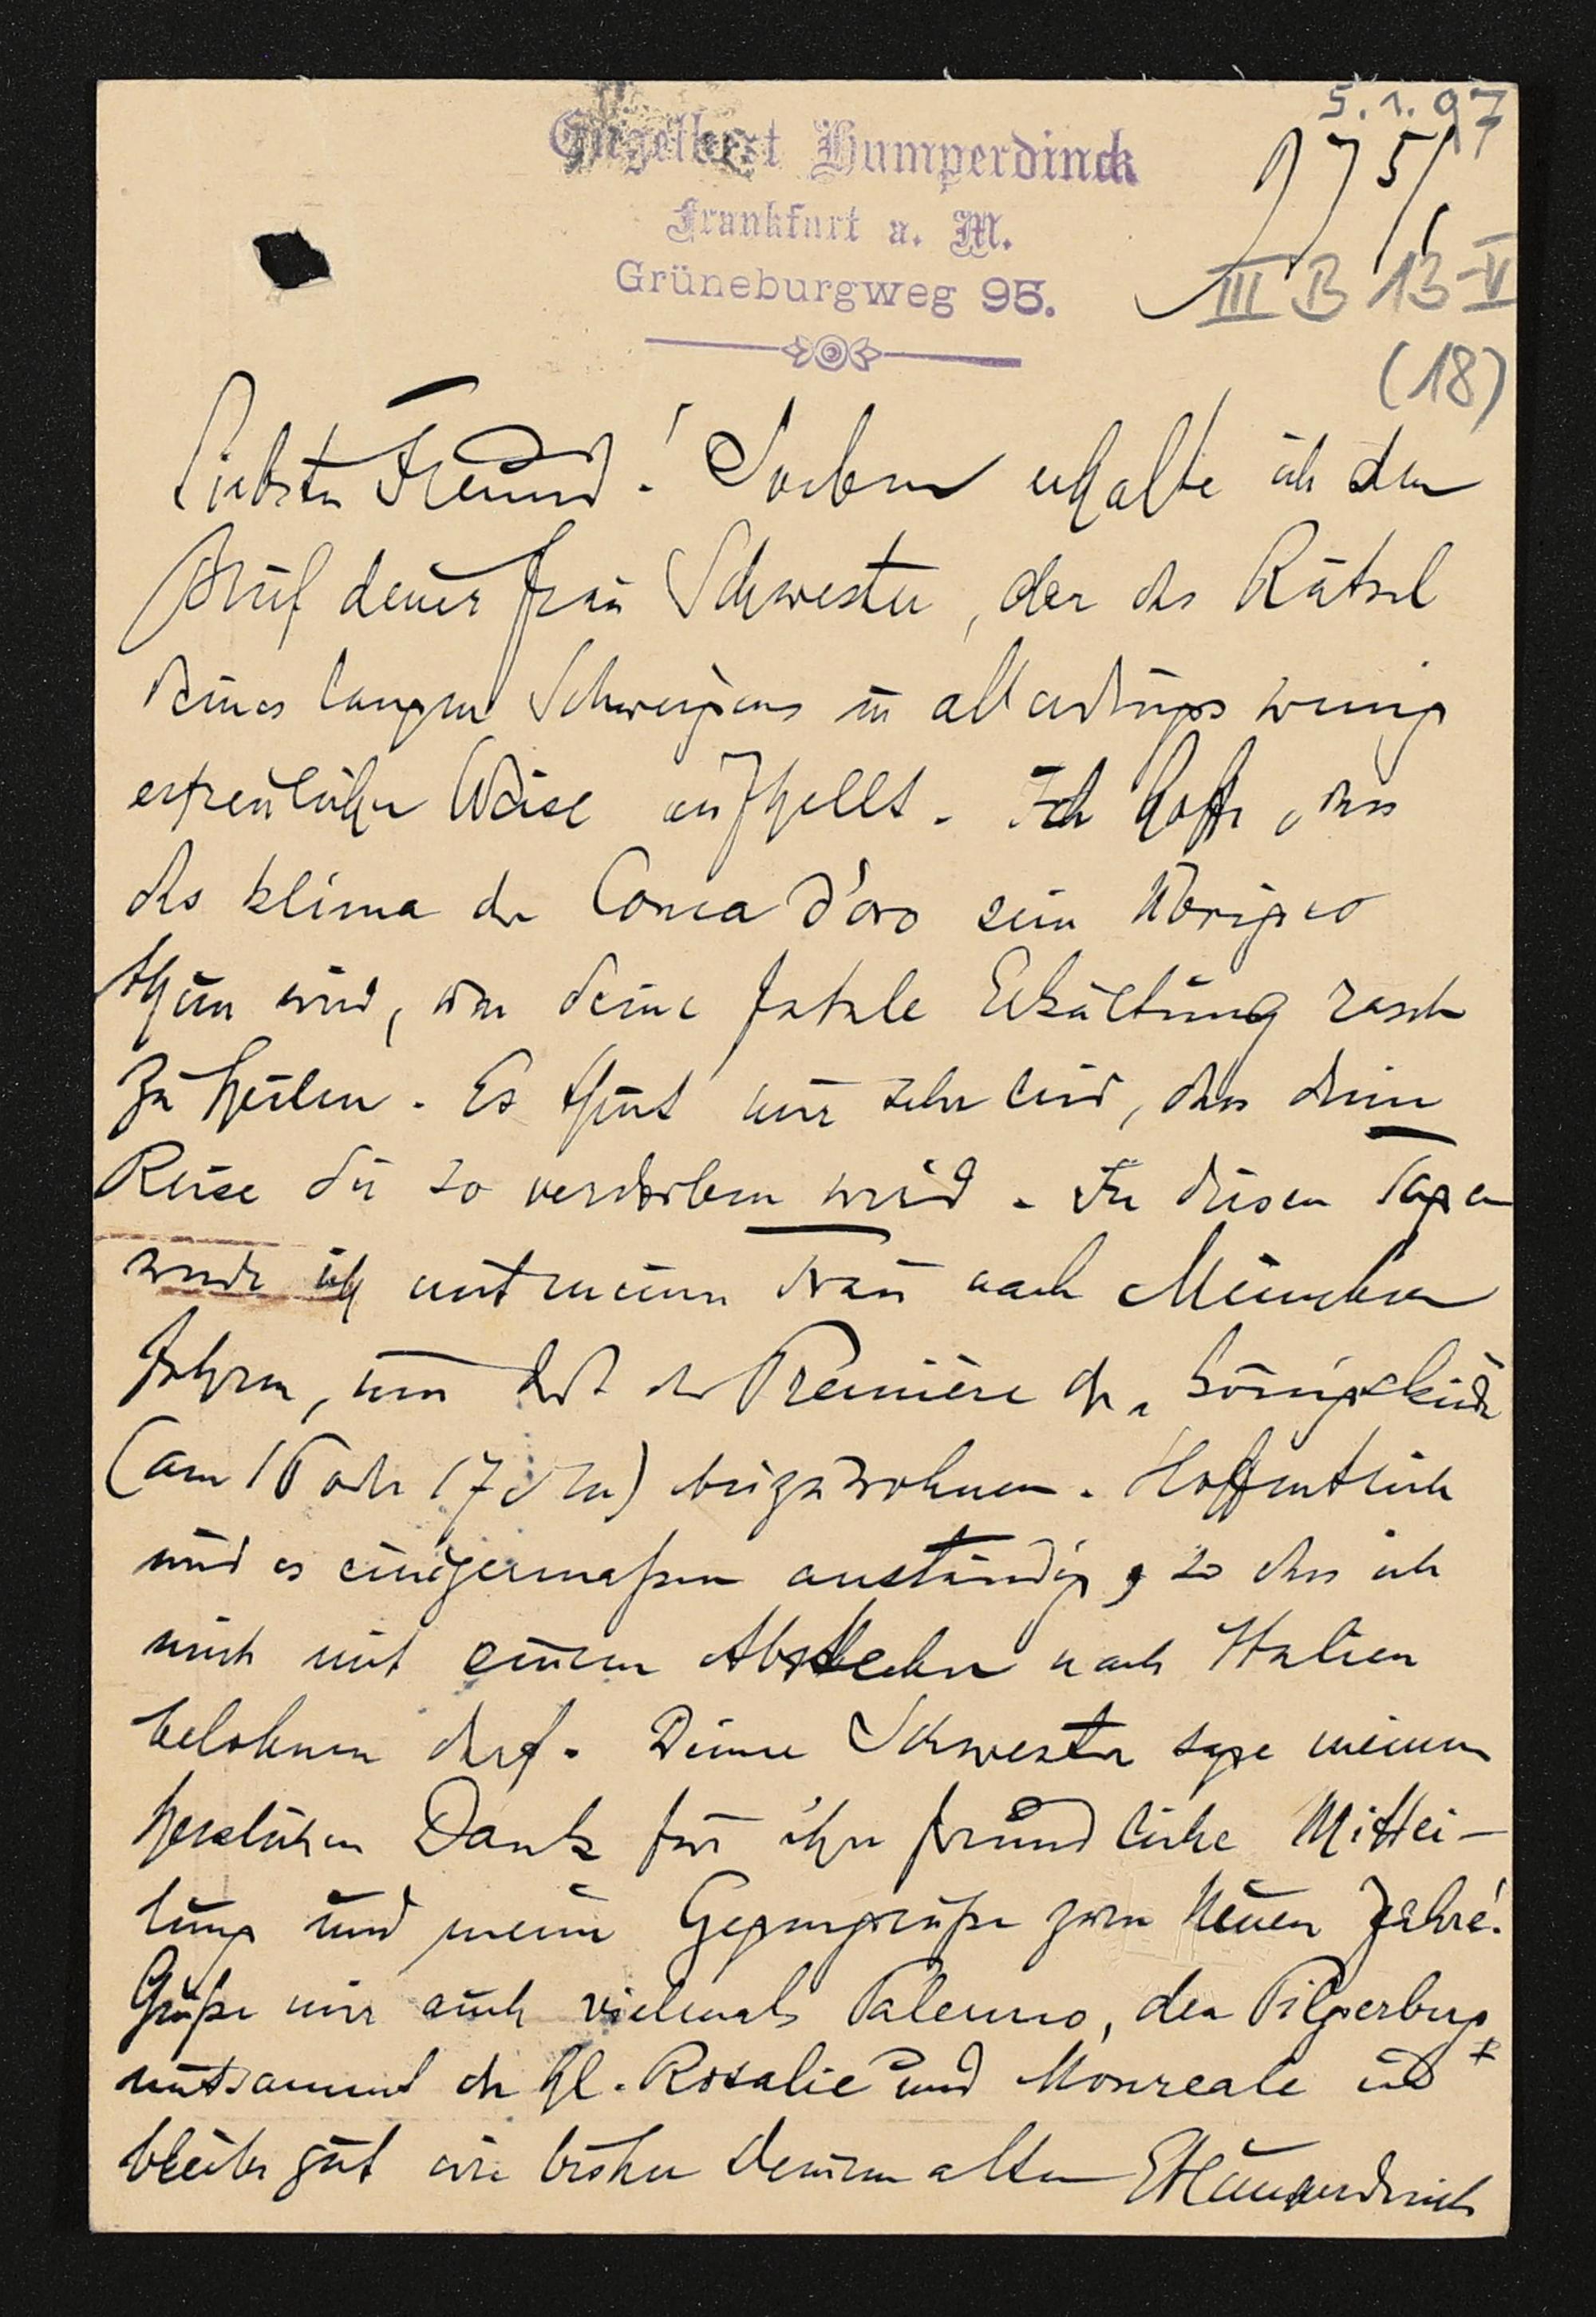 5.1.97
Engelbert Humperdinck
Frankfurt a. M.
Grüneburgweg 95.
1 7 5/1
III B 13-V
(18)
Liebster Freund! Soeben erhalte ich den
Brief deiner Frau Schwester, der das Rätsel
deines langen Schweigens in allerdings wenig
erfreulicher Weise aufhellt. Ich hoffe, dass
das Klima der Conca d'oro sein Übriges
thun wird, um deine fatale Erkältung rasch
zu heilen. Es thut mir sehr leid, dass deine
Reise dir so verdorben wird. In diesen Tagen
werde ich mit meiner Frau nach München
fahren, um dort der Première der „Königskinder
(am 16 oder 17 d. M.) beizuwohnen. Hoffentlich
wird es einigermaßen anständig, so dass ich
mich mit einem Abstecher nach Italien
belohnen darf. Deiner Schwester sage meinen
herzlichen Dank für ihre freundliche Mittei-
lung und meine Gegengrüße zum Neuen Jahre!
Grüße mir auch vielmals Palermo, den Pilgerberg
mitsammt der hl. Rosalie und Monreale und
bleibe gut wie bisher Deinem alten EHumperdinck